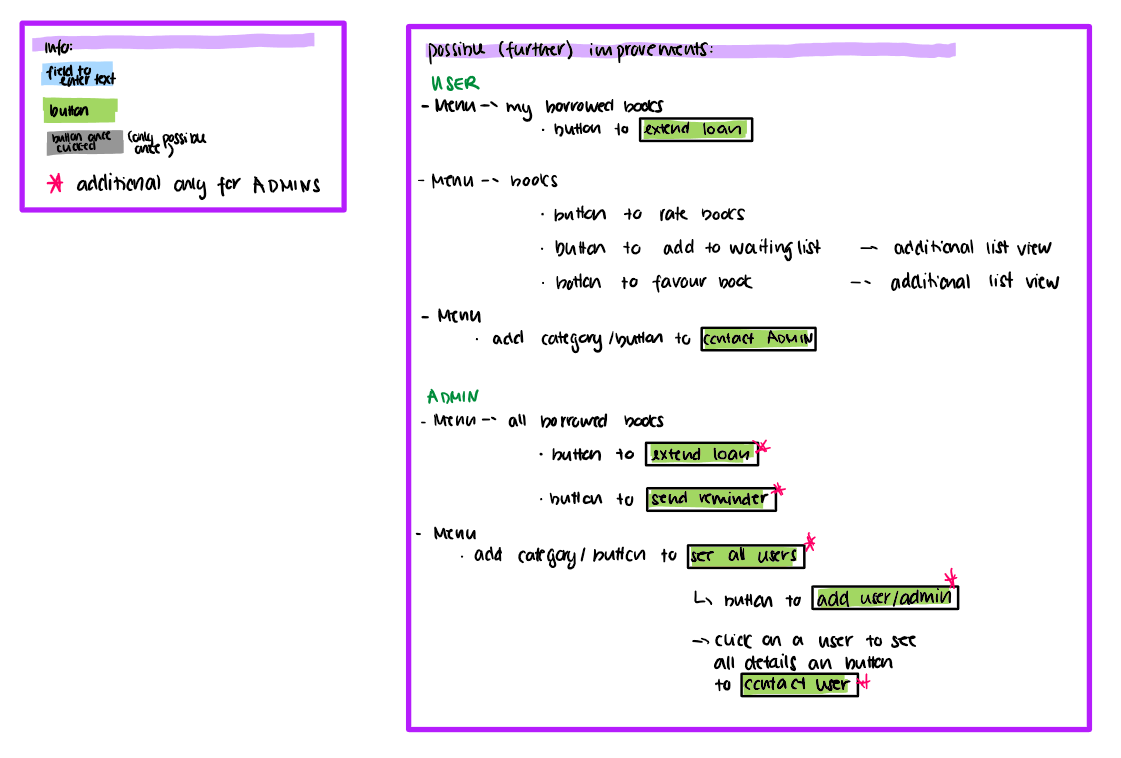 Info:
field to
enter text
button
button once
clicked
(only possible
once)
* additional only for ADMINS
possible (further) improvements:
USER
- Menu -> my borrowed books
· button to extend loan
- Menu -- books
· button to rate books
· button to add to waiting list -> additional list view
· button to favour book -> additional list view
- Menu
· add category/button to contact ADMIN
ADMIN
- Menu -> all borrowed books
· button to extend loan *
· button to send reminder *
- Menu
· add category/button to see all users *
↳ button to add user/admin *
-> click on a user to see
all details an button
to contact user *